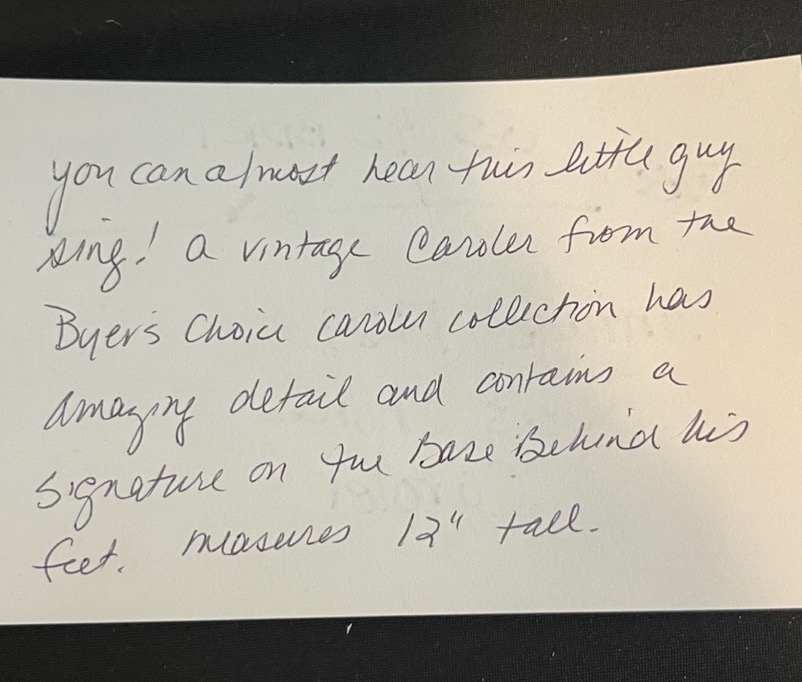 you can almost hear this little guy
sing! a vintage Caroler from the
Byer's Choice caroler collection has
amazing detail and contains a
signature on the Base Behind his
feet. measures 12" tall.